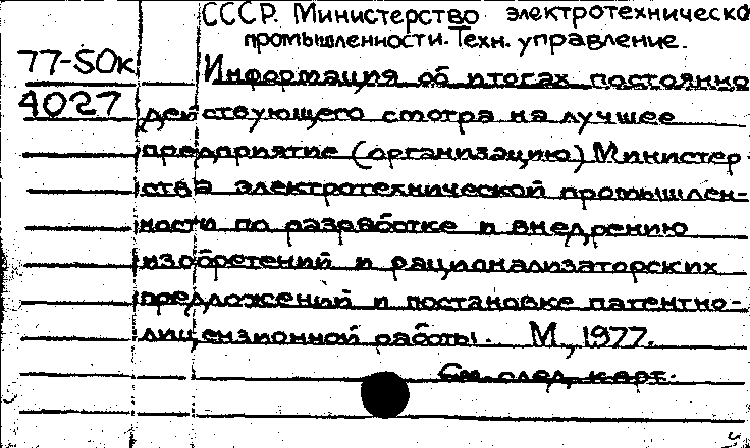 СССР. Министерство электротехническо
промышленности. Техн. управление.
77-50к
Информация об итогах постоянно
4027
действующего смотра на лучшее
предприятие (организацию) Министер
ства электротехнической промышлен-
ности по разработке и внедрению
изобретений и рационализаторских
предложений и постановке патентно-
лицензионной работы. М., 1977.
См. след. карт.